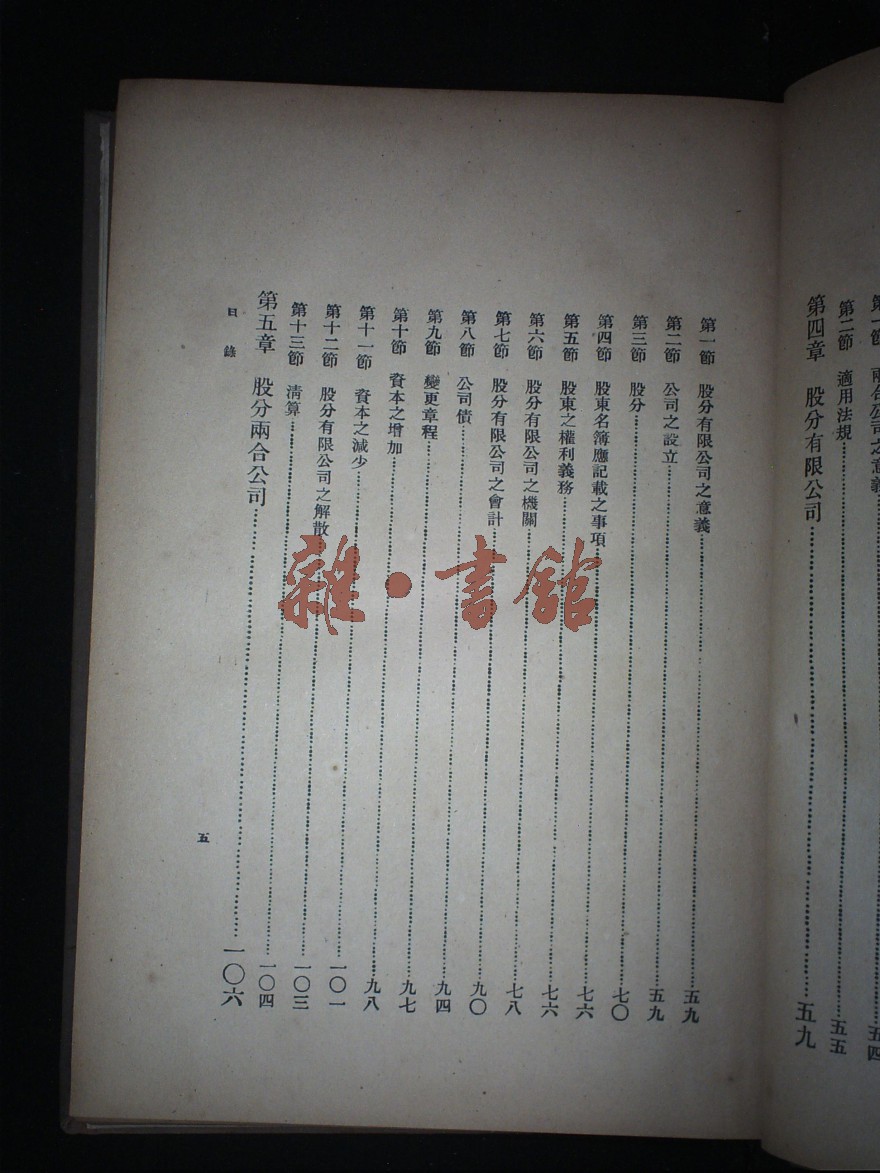 第一節 兩合公司之意義……五四
第二節 適用法規……五五
第四章 股分有限公司……五九
第一節 股分有限公司之意義……五九
第二節 公司之設立……五九
第三節 股分……七〇
第四節 股東名簿應記載之事項……七六
第五節 股東之權利義務……七六
第六節 股分有限公司之機關……七八
第七節 股分有限公司之會計……九〇
第八節 公司債……九四
第九節 變更章程……九七
第十節 資本之增加……九八
第十一節 資本之減少……一〇一
第十二節 股分有限公司之解散……一〇三
第十三節 清算……一〇四
第五章 股分兩合公司……一〇六
目錄
五
雜·書館